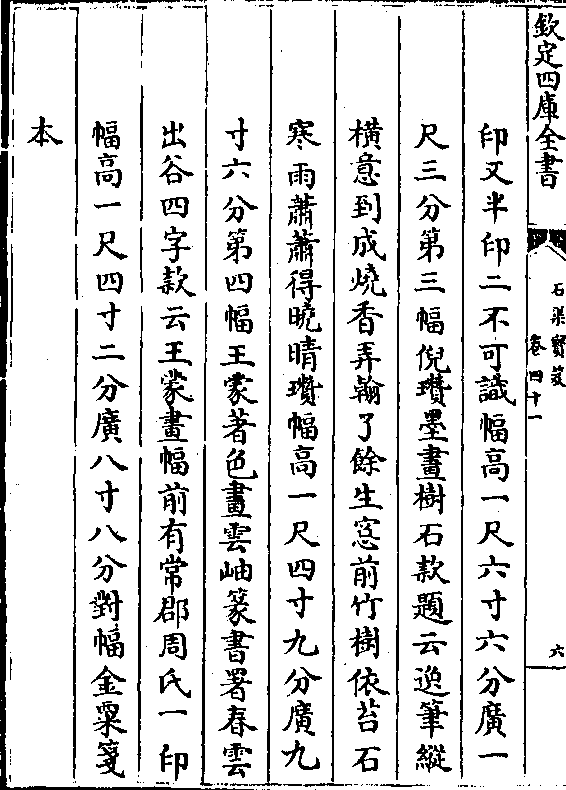 欽定四庫全書
石渠寳笈
卷四十一
六
印又半印二不可識幅高一尺六寸六分廣一
尺三分第三幅倪瓚墨畫樹石款題云逸筆縱
横意到成燒香弄翰了餘生窓前竹樹依苔石
寒雨蕭蕭得曉晴瓚幅髙一尺四寸九分廣九
寸六分第四幅王蒙著色畫雲岫篆書署春雲
出谷四字款云王蒙畫幅前有常郡周氏一印
幅髙一尺四寸二分廣八寸八分對幅金粟箋
本